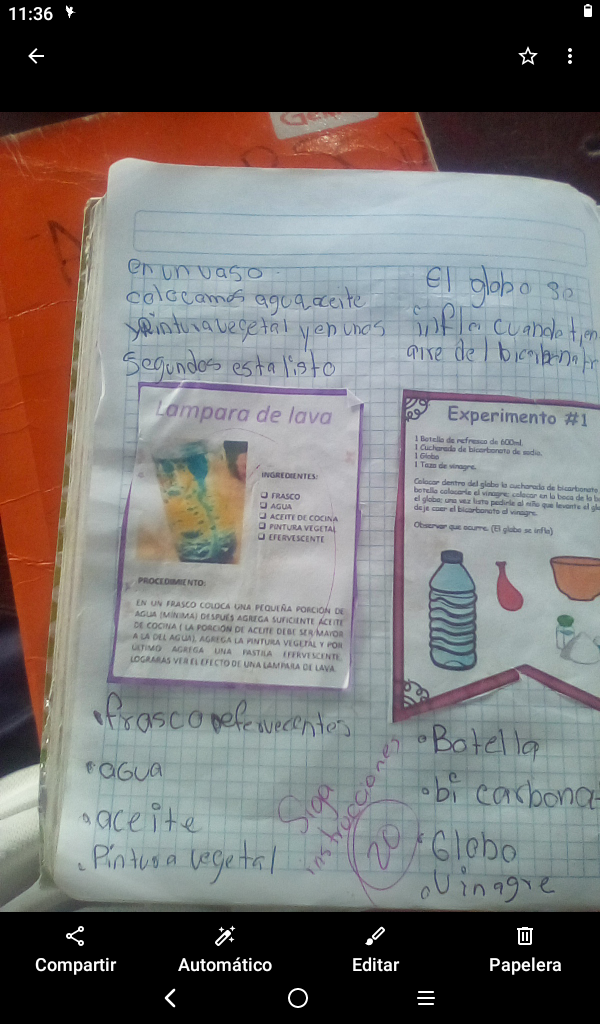 11:36
en un vaso
colocamos agua aceite
y Pintura vegetal y en unos
segundos esta listo
Lampara de lava
INGREDIENTES:
FRASCO
AGUA
ACEITE DE COCINA
PINTURA VEGETAL
EFERVESCENTE
PROCEDIMIENTO:
EN UN FRASCO COLOCA UNA PEQUEÑA PORCIÓN DE
AGUA (MÍNIMA) DESPUÉS AGREGA SUFICIENTE ACEITE
DE COCINA ( LA PORCIÓN DE ACEITE DEBE SER MAYOR
A LA DEL AGUA). AGREGA LA PINTURA VEGETAL Y POR
ÚLTIMO AGREGA UNA PASTILA EFERVESCENTE.
LOGRARAS VER EL EFECTO DE UNA LAMPARA DE LAVA.
frasco efervecentes
agua
aceite
Pintura vegetal
El globo se
infla cuando tien
aire del bicarbonato
Experimento #1
1 Botella de refresco de 600ml.
1 Cucharada de bicarbonato de sodio.
1 Globo
1 Taza de vinagre.
Colocar dentro del globo la cucharada de bicarbonato
botella colocarle el vinagre; colocar en la boca de la b
el globo; una vez listo pedirle al niño que levante el glo
deje caer el bicarbonato al vinagre.
Observar que ocurre. (El globo se infla)
Botella
bi carbona
Globo
Vinagre
Siga
instrucciones
20
Compartir
Automático
Editar
Papelera